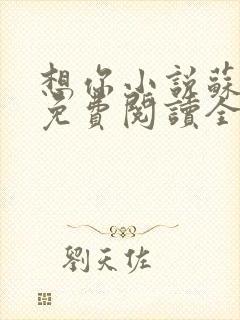 想你小说蘇
免費閱讀全
劉天佐